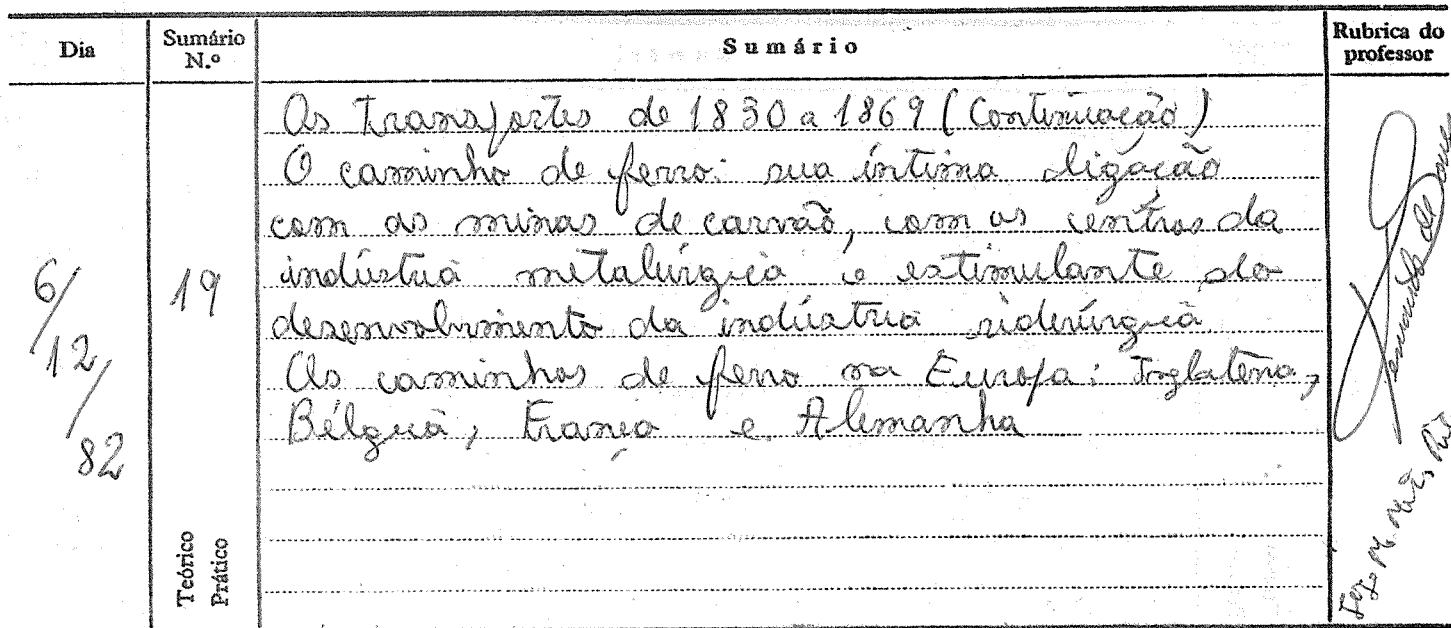 Dia
Sumário N.º
Sumário
Rubrica do professor
6/12/82
19
Teórico
Prático
Os Transportes de 1830 a 1869 (Continuação)
O caminho de ferro: sua íntima ligação
com as minas de carvão, com os centros da
indústria metalúrgica e estimulante do
desenvolvimento da indústria siderúrgica.
Os caminhos de ferro na Europa: Inglaterra,
Bélgica, França e Alemanha